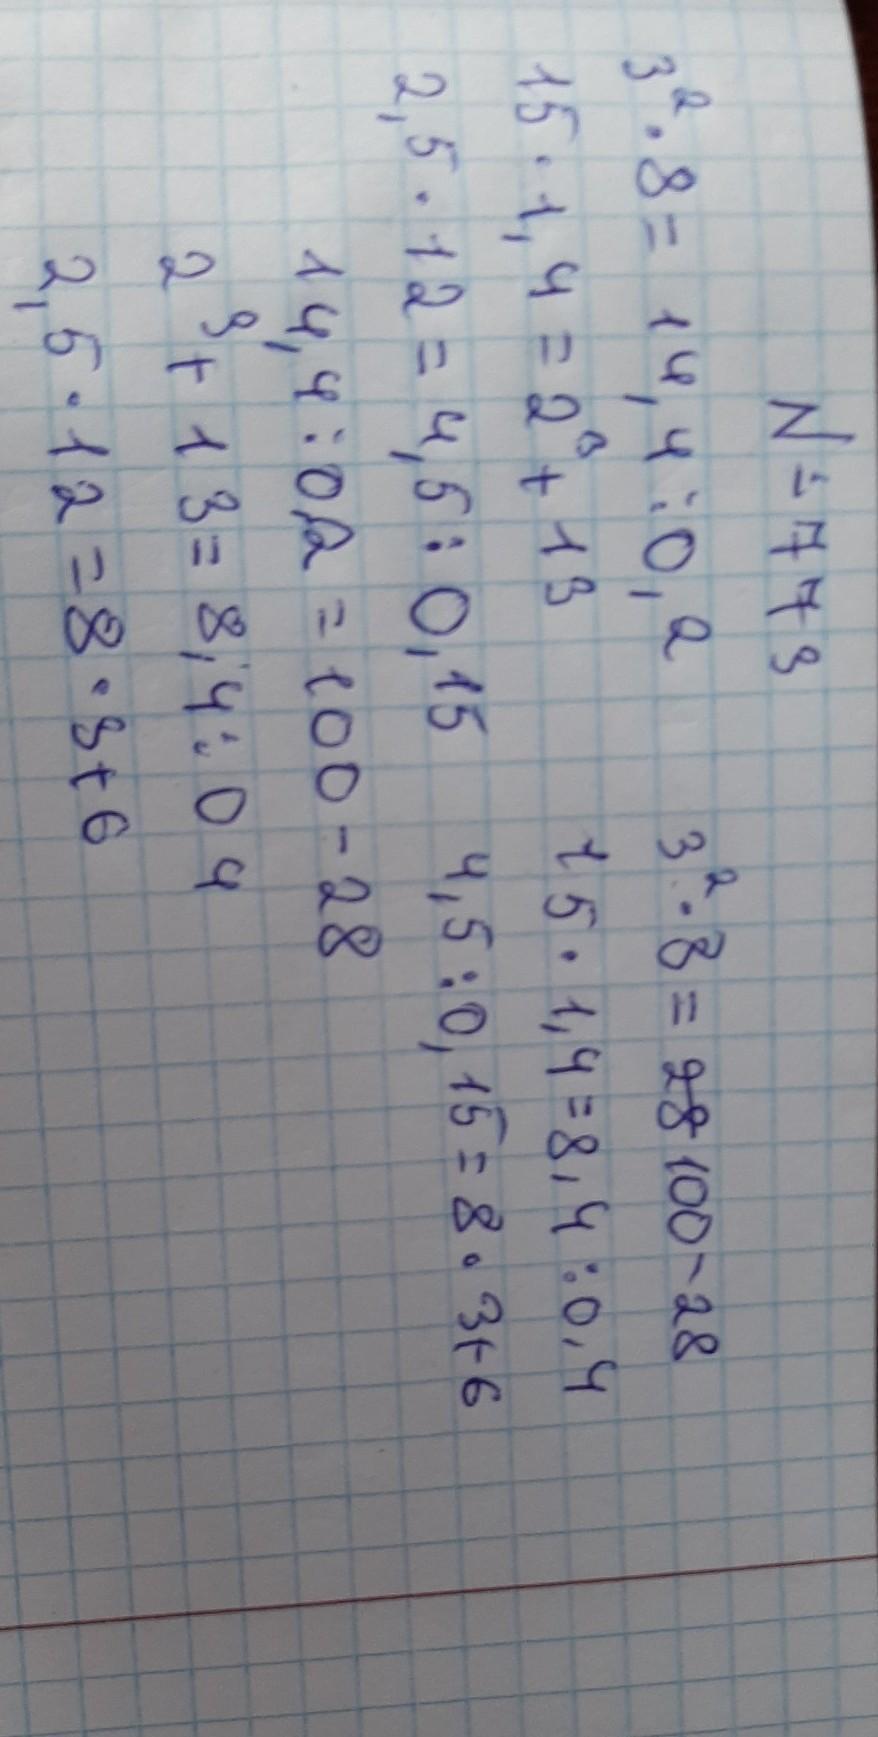 № 773
3² · 8 = 14,4 : 0,2
3² · 8 = 28 100 - 28
15 · 1,4 = 2³ + 13
15 · 1,4 = 8,4 : 0,4
2,5 · 12 = 4,5 : 0,15
4,5 : 0,15 = 8 · 3 + 6
14,4 : 0,2 = 100 - 28
2³ + 13 = 8,4 : 04
2,5 · 12 = 8 · 3 + 6